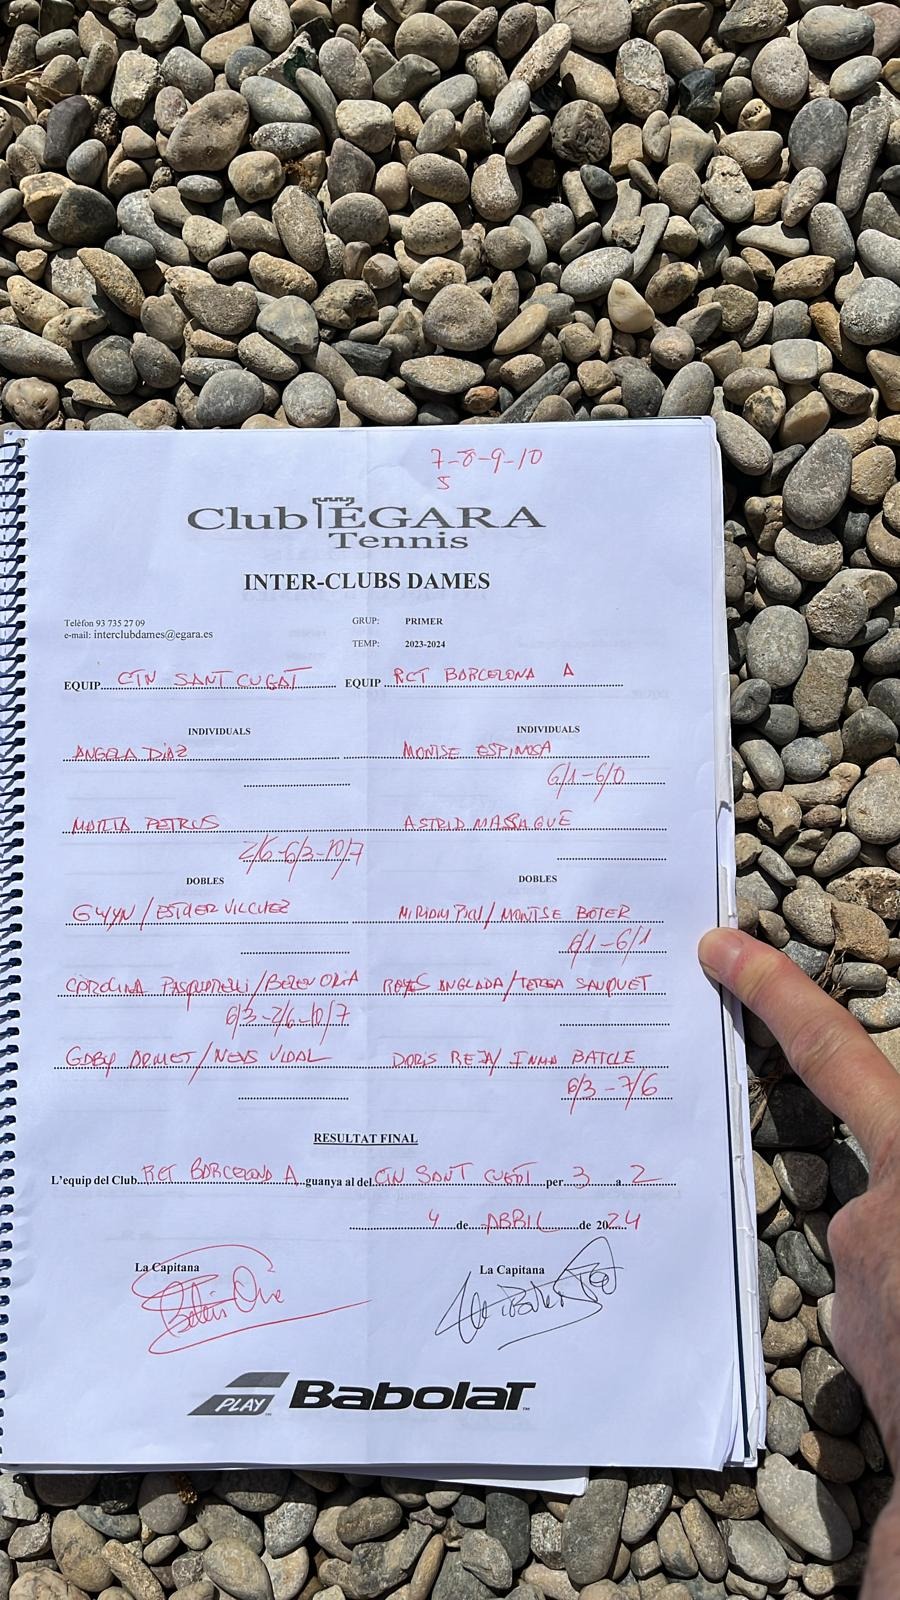 7-8-9-10
5
Club ÉGARA
Tennis
INTER-CLUBS DAMES
Telèfon 93 735 27 09
e-mail: interclubdames@egara.es
GRUP: PRIMER
TEMP: 2023-2024
EQUIP CTN SANT CUGAT EQUIP RCT BARCELONA A
INDIVIDUALS INDIVIDUALS
ANGELA DIAZ MONTSE ESPINOSA
6/1-6/0
MARTA PETRUS ASTRID MASSAGUÉ
2/6-6/3-10/7
DOBLES DOBLES
GWYN/ESTHER VILCHEZ MIRIAM/MONTSE BOTER
6/1-6/1
CAROLINA PASQUARELLI/BELEN ORIA REYES ANGLADA/TERESA SAUQUET
6/3-2/6-10/7
GABY DOMET/NEUS VIDAL DORIS REJA/INMA BATLLE
6/3-7/6
RESULTAT FINAL
L'equip del Club RCT BARCELONA A guanya al del CTN SANT CUGAT per 3 a 2
4 de ABRIL de 2024
La Capitana La Capitana
PLAY BabolaT